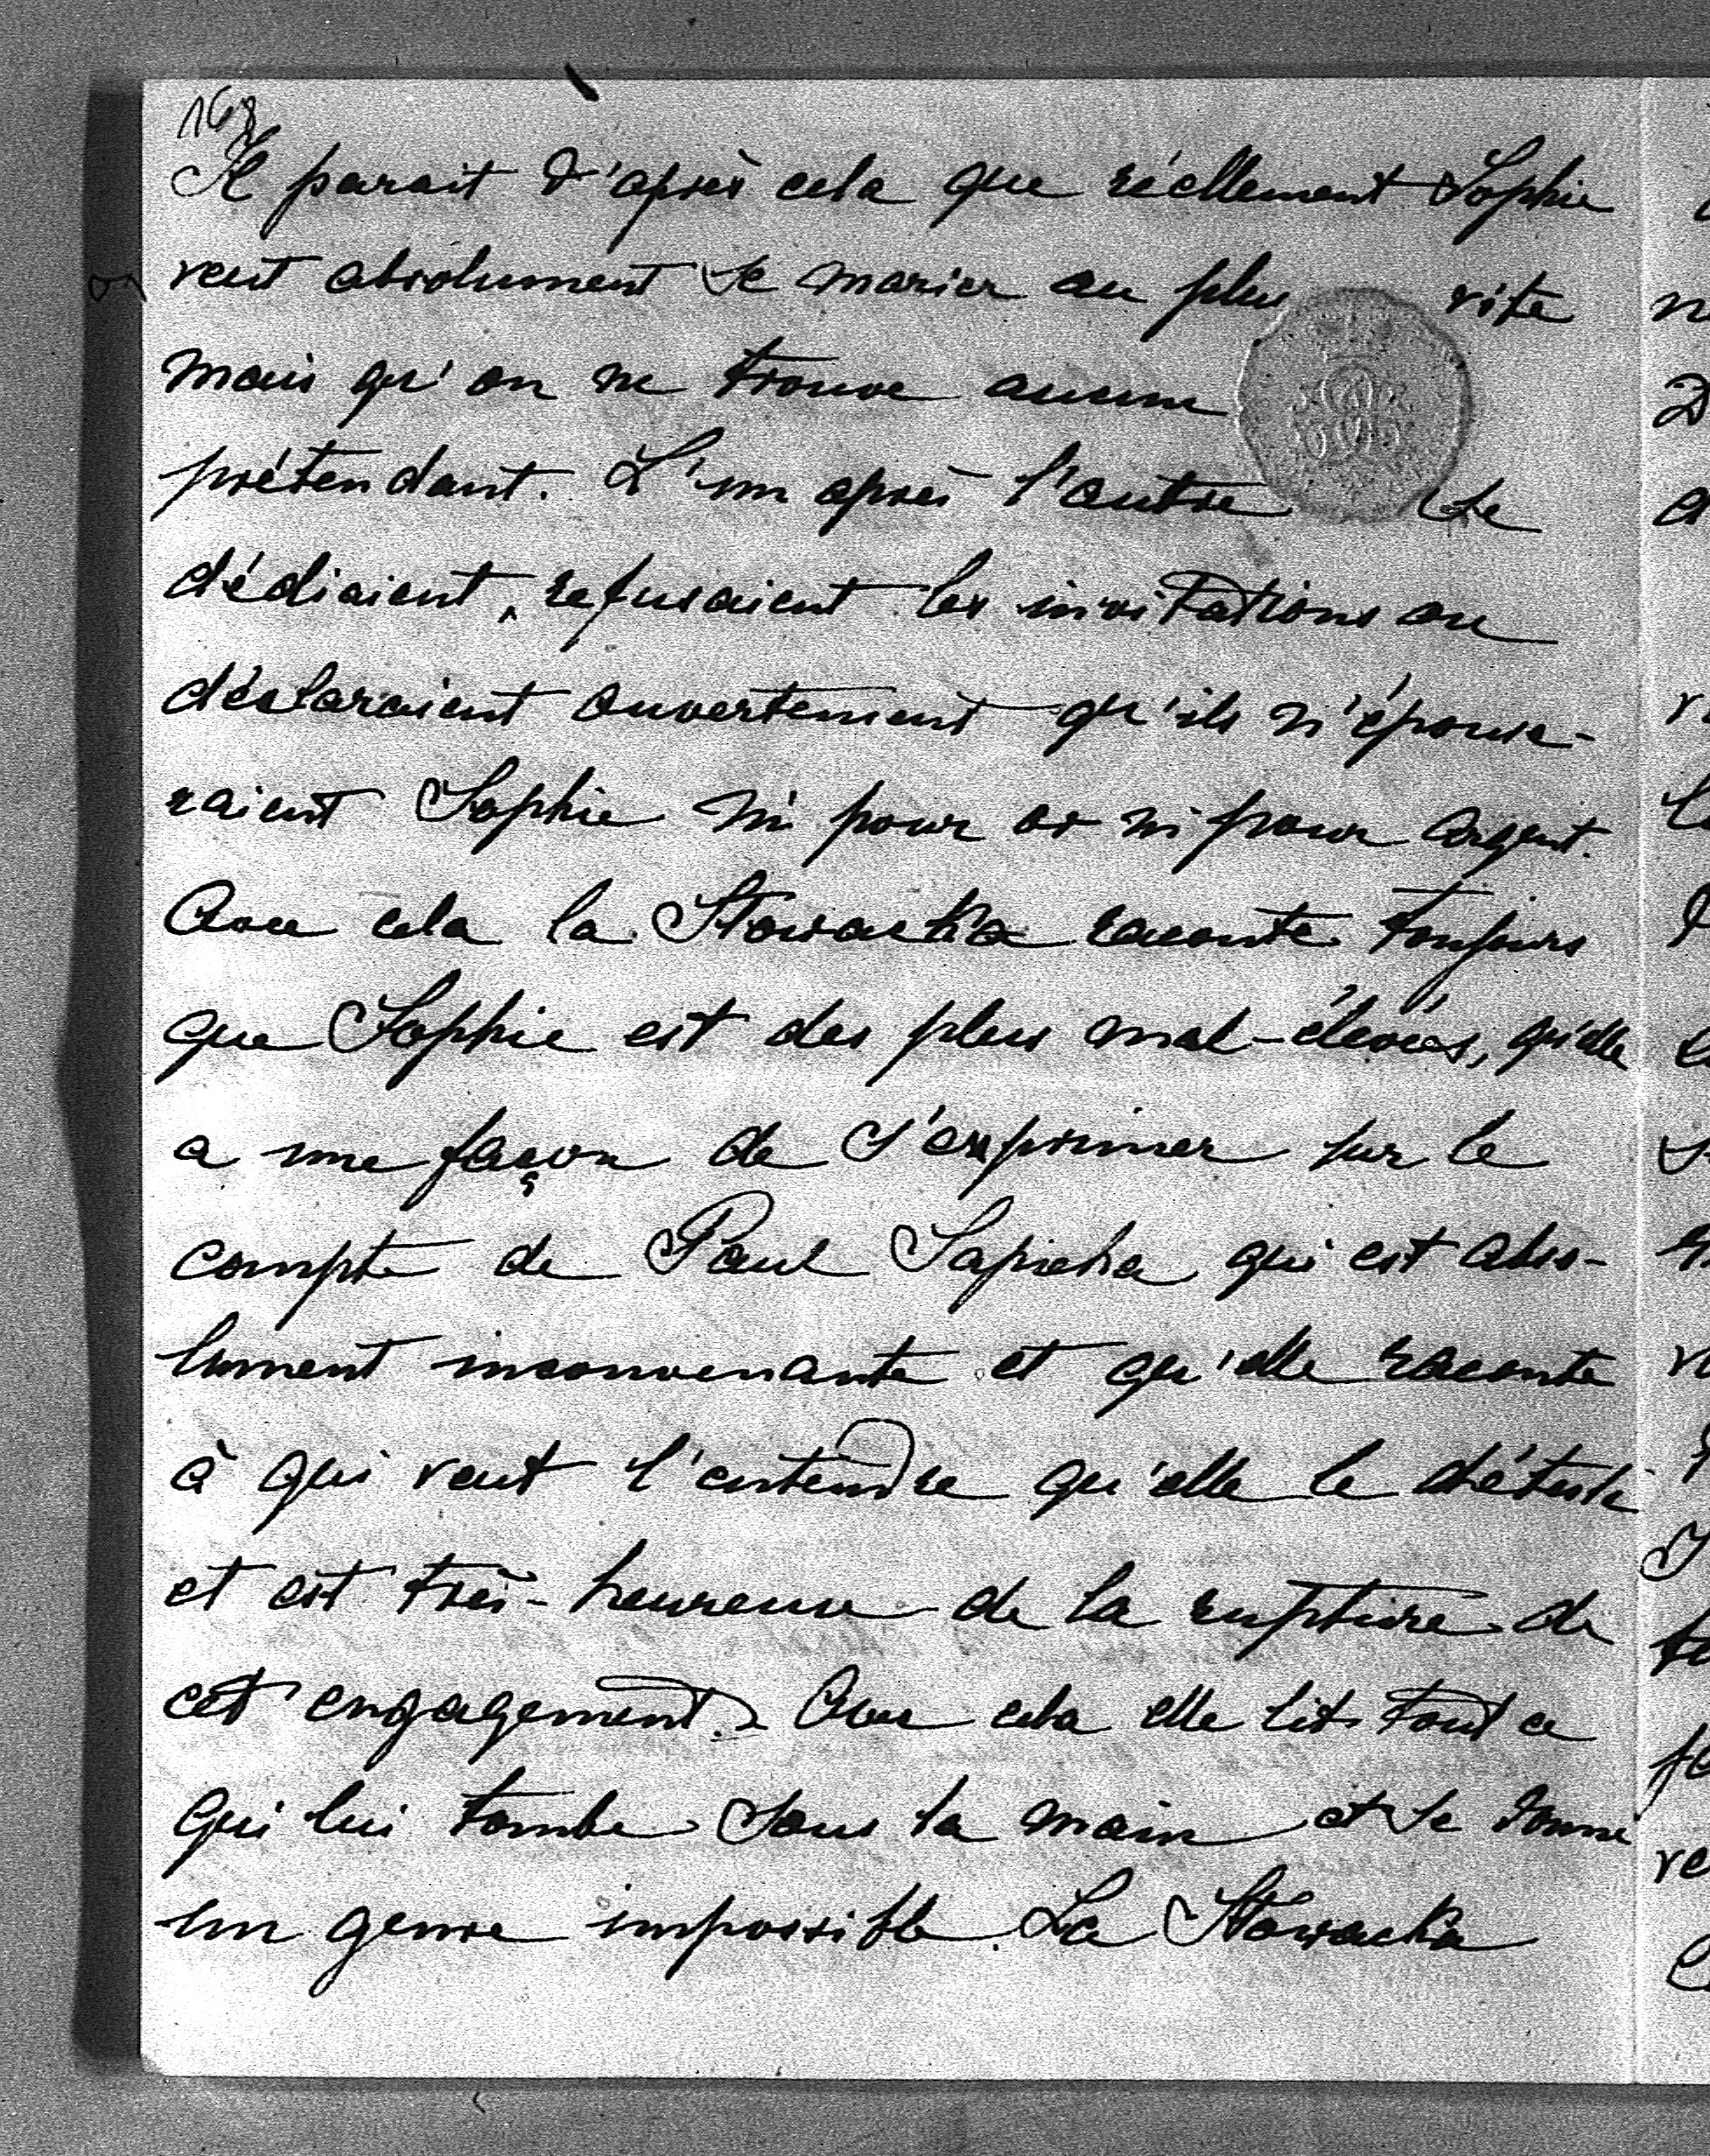 168
Il parait d'après cela que réellement Sophie
veut absolument se marier au plus vite
mais qu'on ne trouve aucun
prétendant. L'un après l'autre se
dédiaient, refusaient les invitations ou
déclaraient ouvertement qu'ils n'épouse-
raient Sophie ni pour or ni pour argent.
Avec cela la Stowacka raconte toujours
que Sophie est des plus mal-élevées, qu'elle
a une façon de s'exprimer sur le
compte de Paul Sapieha qui est abso-
lument inconvenante et qu'elle raconte
à qui veut l'entendre qu'elle le déteste
et est très-heureuse de la rupture de
cet engagement. Avec cela elle lit tout ce
qui lui tombe sous la main et se donne
un genre impossible. La Stowacka